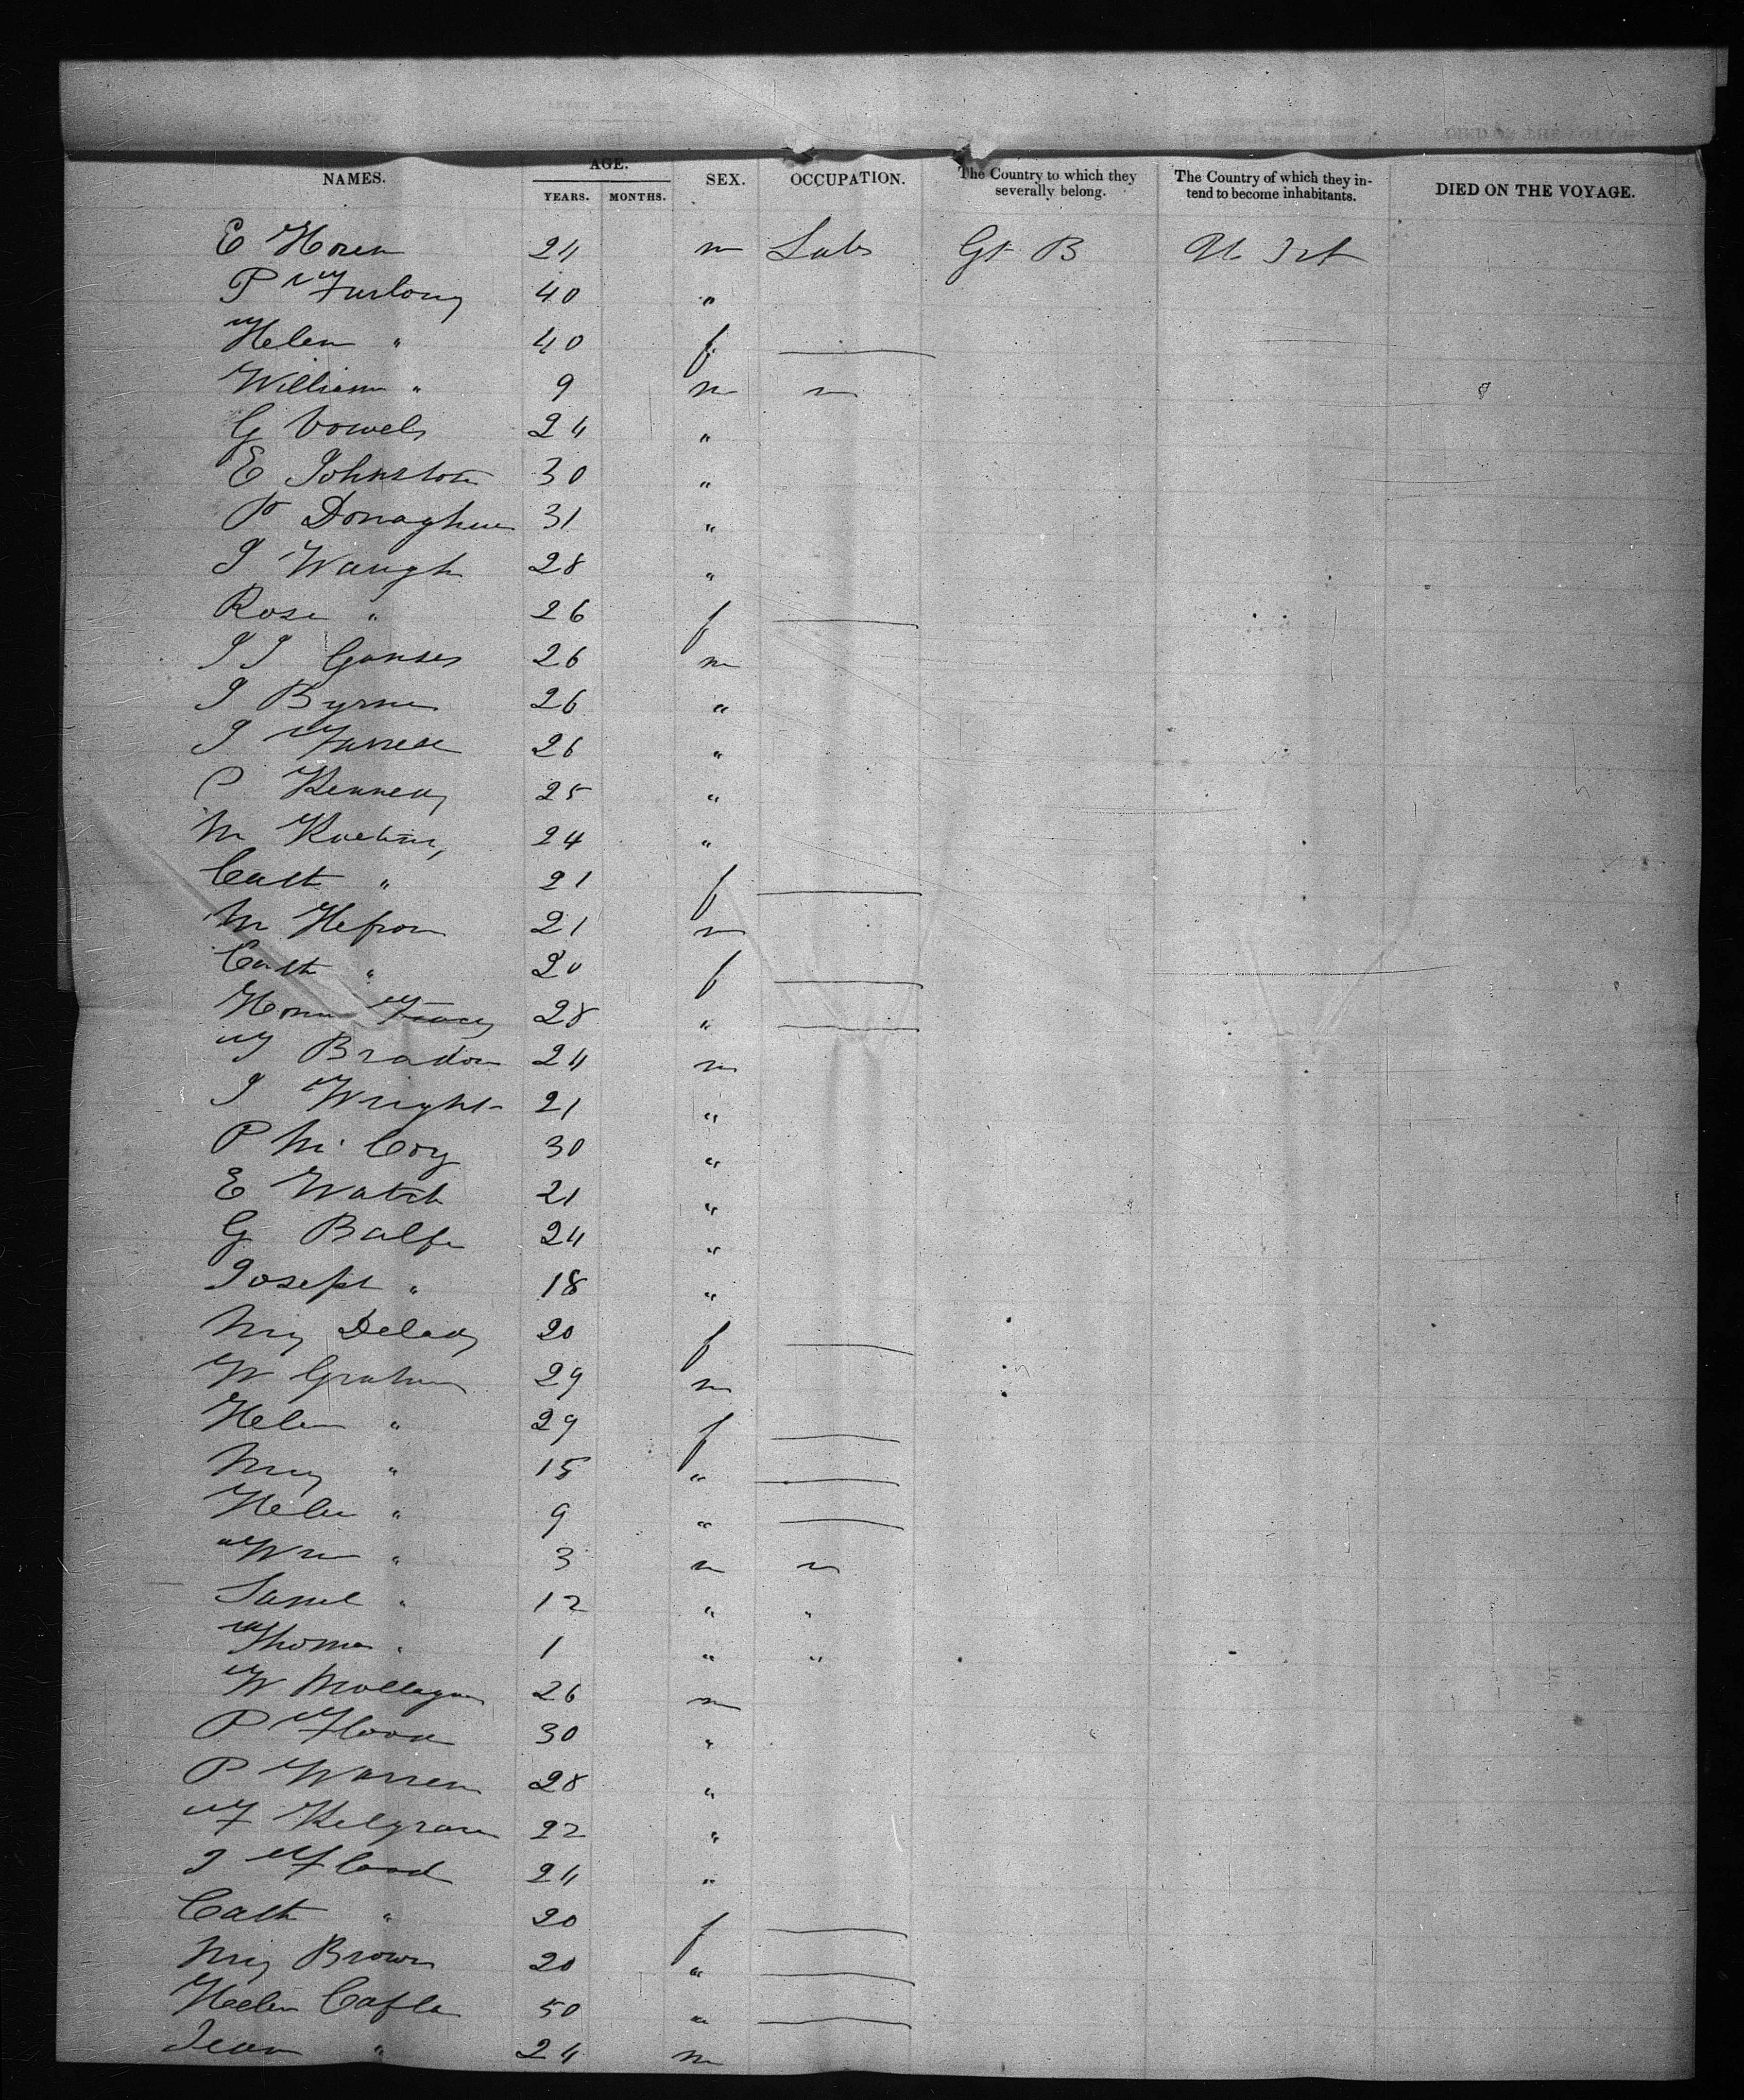 NAMES. AGE. SEX. OCCUPATION. The Country to which they severally belong. The Country of which they intend to become inhabitants. DIED ON THE VOYAGE.
YEARS. MONTHS.
E Horen 24 m Labr Gt B U. Sts
P Furlong 40 "
Helen " 40 f
William " 9 m
G Vowels 24 "
E Johnston 30 "
P Donaghue 31 "
J Waugh 28 "
Rose " 26 f
J J 26 m
J Byrne 26 "
J Farrell 26 "
P Kennedy 25 "
M 24 "
Cath " 21 f
M Hefron 21 m
Cath " 20 f
Tracey 28 "
T Bradon 24 m
J Wright 21 "
P Mc Coy 30 "
E Watch 21 "
G Balfe 24 "
Joseph " 18 "
My Delady 20 f
W Graham 29 m
Helen " 29 f
My " 15 "
Helen " 9 "
Wm " 3 m
Saml " 12 " "
Thomas " 1 " "
W Mollagan 26 m
P Flood 30 "
P Warren 28 "
F Kelgran 22 "
J Flood 24 "
Cath " 20 f
My Brown 20 "
Helen Cafla 50 "
" 24 m